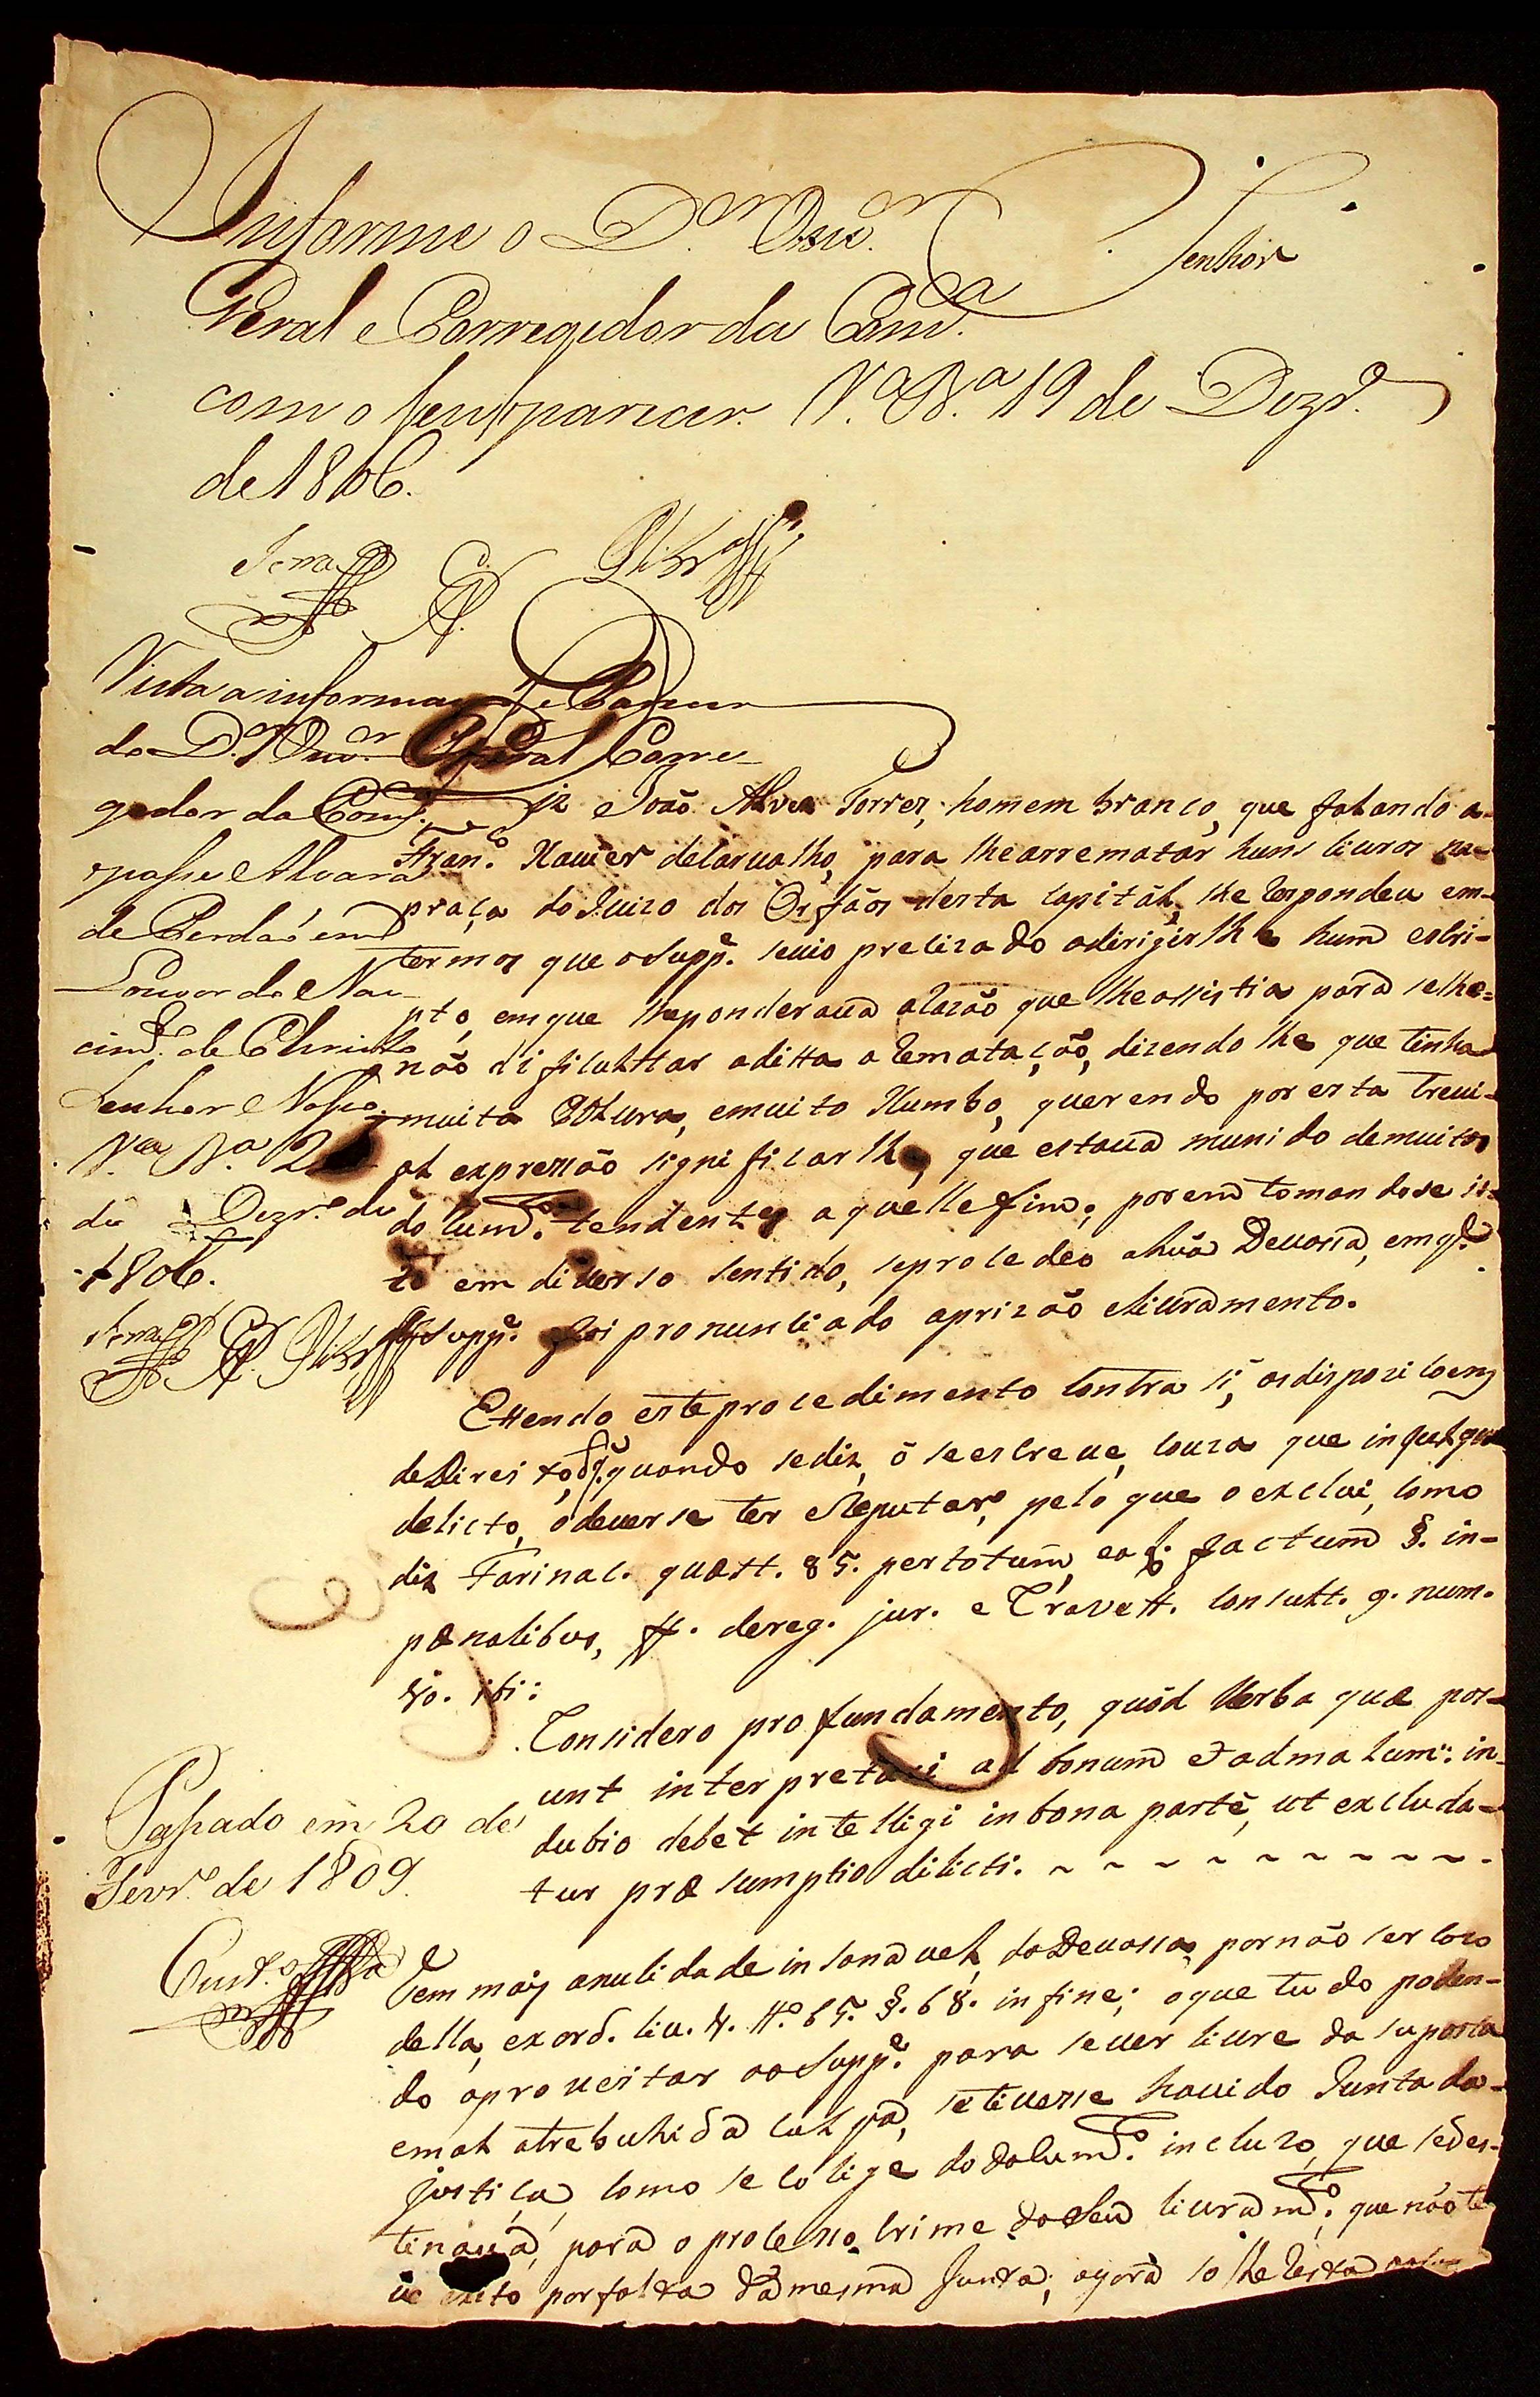 Informe o D.or Ouv.or
Geral e Corregedor da Com.ca
com o seu parecer. V.a B.a 19 de Dezr.o
de 1806.
Senhor
Vista a informação e Parecer
do D.or Ouv.or Geral Corre-
gedor da Com.ca
se passe Alvará
de Perdão em
Louvor do Nas-
cim.to de Christo
Senhor Nosso.
V.a B.a 2
de Dezr.o de
1806.
Diz João Alves Torres, homem branco, que falando a-
Fran.co Xavier de Carvalho, para lhe arrematar huns livros na-
praça do Juizo dos Orfãos desta Capitál, lhe respondeu em-
termos que o Supp.e se vio precizado a dirigir lhe hum escri-
pto, em que lhe ponderava a razão que lhe assistia para se lhe-
não dificultar a ditta arematação, dizendo lhe que tinha
muita Polvora, e muito Xumbo, querendo por esta trevi-
al expressão significar lhe, que estava munido de muitos
docum.tos tendentes a quelle fim; porem tomandose is-
to em diverso sentido, se procedeo a hũa Devossa, em q.
o Supp.e foi pronunciado a prizão e livramento.
E tendo este procedimento contra si, as dispozicoens
de Direito, p.q. quando se diz, ó se escreve, couza que inculque
delicto, o deverse ter e Reputar, pelo que o exclui, como
diz Farinac. quæst. 85. per totum, ea l. factum §. in-
pœnalibus, ff. de reg. jur. e Cravett. consult. 9. num.
40. ibi:
Considero pro fundamento, quód Verba quæ pos-
unt interpretari ad bonum et ad malum: in-
dubio debet intelligi in bona parte, ut excluda-
tur præsumptio dilicti. ~ ~ ~ ~ ~ ~ ~ ~ ~ ~
Passado em 20 de
Fevr.o de 1809.
Tem mais a nulidade insanavel, da Devassa por não ser cazo
della, ex ord. liv. 4. tt.o 65. §. 68. in fine; o que tudo poden-
do aproveitar ao Supp.e para se ver livre da suposta
e mal atrebuhida culpa, se tivesse havido Junta da-
justiça, como se colige do docum.to incluzo, que se des-
tinava para o processo crime do seu livram.to que não te
ve exito por falta da mesma Junta; agora só lhe resta